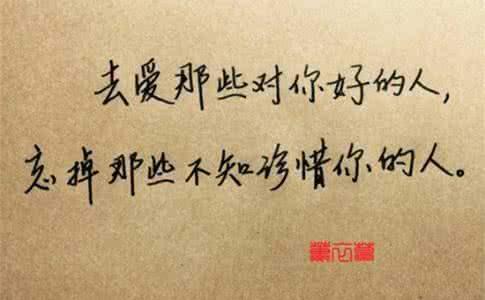 去爱那些对你好的人，
忘掉那些不知珍惜你的人。